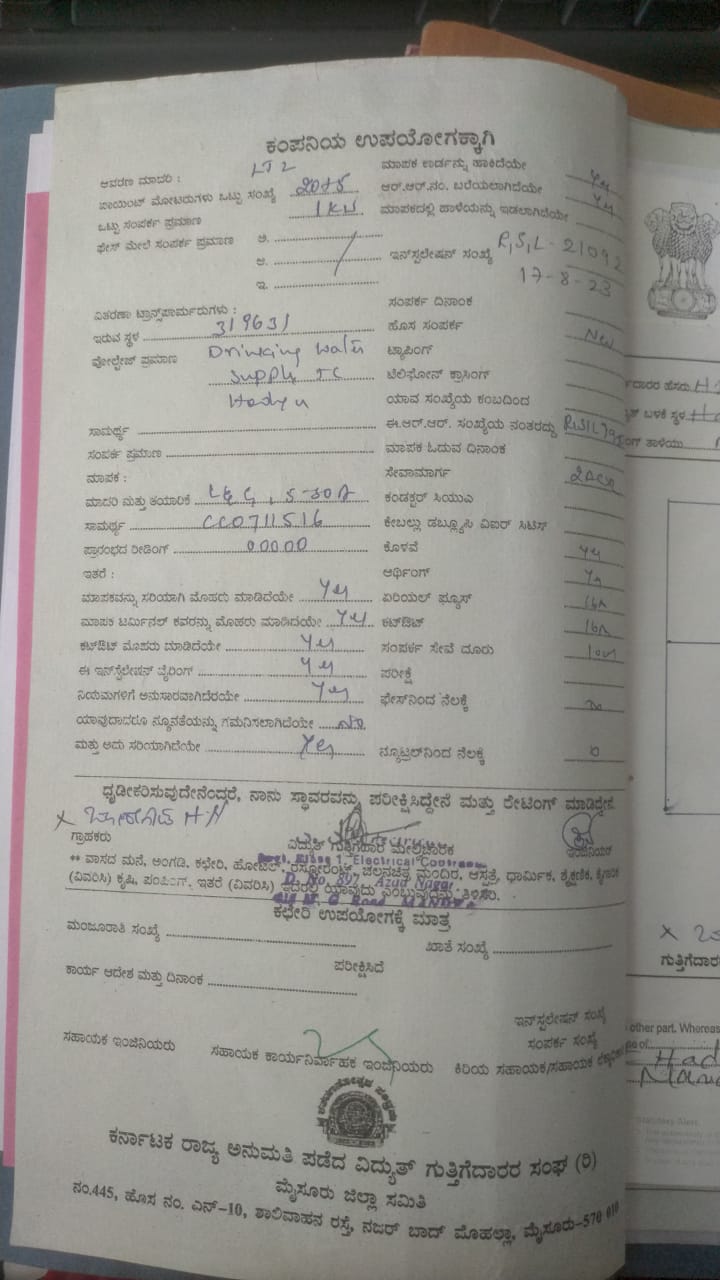 ಕಂಪನಿಯ ಉಪಯೋಗಕ್ಕಾಗಿ
ಆವರಣ ಮಾದರಿ : LT2 ಮಾಪಕ ಕಾರ್ಡನ್ನು ಹಾಕಿದೆಯೇ Yes
ಪಾಯಿಂಟ್ ಮೋಟರುಗಳು ಒಟ್ಟು ಸಂಖ್ಯೆ ಆರ್.ಆರ್.ನಂ. ಬರೆಯಲಾಗಿದೆಯೇ Yes
ಒಟ್ಟು ಸಂಪರ್ಕ ಪ್ರಮಾಣ 1KW ಮಾಪಕದಲ್ಲಿ ಹಾಳೆಯನ್ನು ಇಡಲಾಗಿದೆಯೇ
ಫೇಸ್ ಮೇಲೆ ಸಂಪರ್ಕ ಪ್ರಮಾಣ ಅ.
ಆ. ಇನ್‌ಸ್ಟಲೇಷನ್ ಸಂಖ್ಯೆ R,S,L-21092
ಇ. 17-8-23
ವಿತರಣಾ ಟ್ರಾನ್ಸ್‌ಫಾರ್ಮರುಗಳು : ಸಂಪರ್ಕ ದಿನಾಂಕ
ಇರುವ ಸ್ಥಳ 319631 ಹೊಸ ಸಂಪರ್ಕ New
ವೋಲ್ಟೇಜ್ ಪ್ರಮಾಣ Drinking Water ಟ್ಯಾಪಿಂಗ್
Supply TC ಟೆಲಿಫೋನ್ ಕ್ರಾಸಿಂಗ್
ಯಾವ ಸಂಖ್ಯೆಯ ಕಂಬದಿಂದ
ಸಾಮರ್ಥ್ಯ ಈ.ಆರ್.ಆರ್. ಸಂಖ್ಯೆಯ ನಂತರದ್ದು
ಸಂಪರ್ಕ ಪ್ರಮಾಣ ಮಾಪಕ ಓದುವ ದಿನಾಂಕ
ಮಾಪಕ : ಸೇವಾಮಾರ್ಗ
ಮಾದರಿ ಮತ್ತು ತಯಾರಿಕೆ L&G, 5-30A ಕಂಡಕ್ಟರ್ ಸಿಯುಎ
ಸಾಮರ್ಥ್ಯ CC0711516 ಕೇಬಲ್ಲು ಡಬ್ಲ್ಯೂಪಿ ವಿಐಆರ್ ಸಿಟಿಸ್
ಪ್ರಾರಂಭದ ರೀಡಿಂಗ್ 00000 ಕೊಳವೆ Yes
ಇತರೆ : ಆರ್ಥಿಂಗ್ Yes
ಮಾಪಕವನ್ನು ಸರಿಯಾಗಿ ಮೊಹರು ಮಾಡಿದೆಯೇ Yes ಏರಿಯಲ್ ಫ್ಯೂಸ್ 16A
ಮಾಪಕ ಟರ್ಮಿನಲ್ ಕವರನ್ನು ಮೊಹರು ಮಾಡಿದೆಯೇ Yes ಕಟ್‌ಔಟ್ 16A
ಕಟ್‌ಔಟ್ ಮೊಹರು ಮಾಡಿದೆಯೇ Yes ಸಂಪರ್ಕ ಸೇವೆ ದೂರು
ಈ ಇನ್‌ಸ್ಟಲೇಷನ್ ವೈರಿಂಗ್ Yes ಪರೀಕ್ಷೆ
ನಿಯಮಗಳಿಗೆ ಅನುಸಾರವಾಗಿದೆಯೇ Yes ಫೇಸ್‌ನಿಂದ ನೆಲಕ್ಕೆ
ಯಾವುದಾದರೂ ನ್ಯೂನತೆಯನ್ನು ಗಮನಿಸಲಾಗಿದೆಯೇ No
ಮತ್ತು ಅದು ಸರಿಯಾಗಿದೆಯೇ Yes ನ್ಯೂಟ್ರಲ್‌ನಿಂದ ನೆಲಕ್ಕೆ
ಧೃಡೀಕರಿಸುವುದೇನೆಂದರೆ, ನಾನು ಸ್ಥಾವರವನ್ನು ಪರೀಕ್ಷಿಸಿದ್ದೇನೆ ಮತ್ತು ರೇಟಿಂಗ್ ಮಾಡಿದ್ದೇನೆ.
ಗ್ರಾಹಕರು ವಿದ್ಯುತ್ ಗುತ್ತಿಗೆದಾರ ಮೇಲ್ವಿಚಾರಕ ಇಂಜಿನಿಯರ್
Class 1, Electrical
** ವಾಸದ ಮನೆ, ಅಂಗಡಿ, ಕಛೇರಿ, ಹೋಟೆಲ್, ರೆಸ್ಟೋರೆಂಟ್, ಚಲನಚಿತ್ರ ಮಂದಿರ, ಆಸ್ಪತ್ರೆ, ಧಾರ್ಮಿಕ, ಶೈಕ್ಷಣಿಕ, ಕೈಗಾರಿಕೆ
D. No. 897, Azad Nagar
(ವಿವರಿಸಿ) ಕೃಷಿ, ಪಂಪಿಂಗ್, ಇತರೆ (ವಿವರಿಸಿ) ಇದರಲ್ಲಿ ಯಾವುದು ಎಂಬುವುದನ್ನು ತಿಳಿಸಿರಿ.
Road
ಕಛೇರಿ ಉಪಯೋಗಕ್ಕೆ ಮಾತ್ರ
ಮಂಜೂರಾತಿ ಸಂಖ್ಯೆ ಖಾತೆ ಸಂಖ್ಯೆ
ಪರೀಕ್ಷಿಸಿದೆ
ಕಾರ್ಯ ಆದೇಶ ಮತ್ತು ದಿನಾಂಕ
ಇನ್‌ಸ್ಟಲೇಷನ್ ಸಂಖ್ಯೆ
ಸಂಪರ್ಕ ಸಂಖ್ಯೆ
ಸಹಾಯಕ ಇಂಜಿನಿಯರು ಸಹಾಯಕ ಕಾರ್ಯನಿರ್ವಾಹಕ ಇಂಜಿನಿಯರು ಕಿರಿಯ ಸಹಾಯಕ/ಸಹಾಯಕ
ಕರ್ನಾಟಕ ರಾಜ್ಯ ಅನುಮತಿ ಪಡೆದ ವಿದ್ಯುತ್ ಗುತ್ತಿಗೆದಾರರ ಸಂಘ (ರಿ)
ಮೈಸೂರು ಜಿಲ್ಲಾ ಸಮಿತಿ
ನಂ.445, ಹೊಸ ನಂ. ಎನ್-10, ಶಾಲಿವಾಹನ ರಸ್ತೆ, ನಜರ್ ಬಾದ್ ಮೊಹಲ್ಲಾ, ಮೈಸೂರು-570 010
ದಾರರ ಹೆಸರು
ಬಳಕೆ ಸ್ಥಳ
ಗುತ್ತಿಗೆದಾರ
other part. Whereas